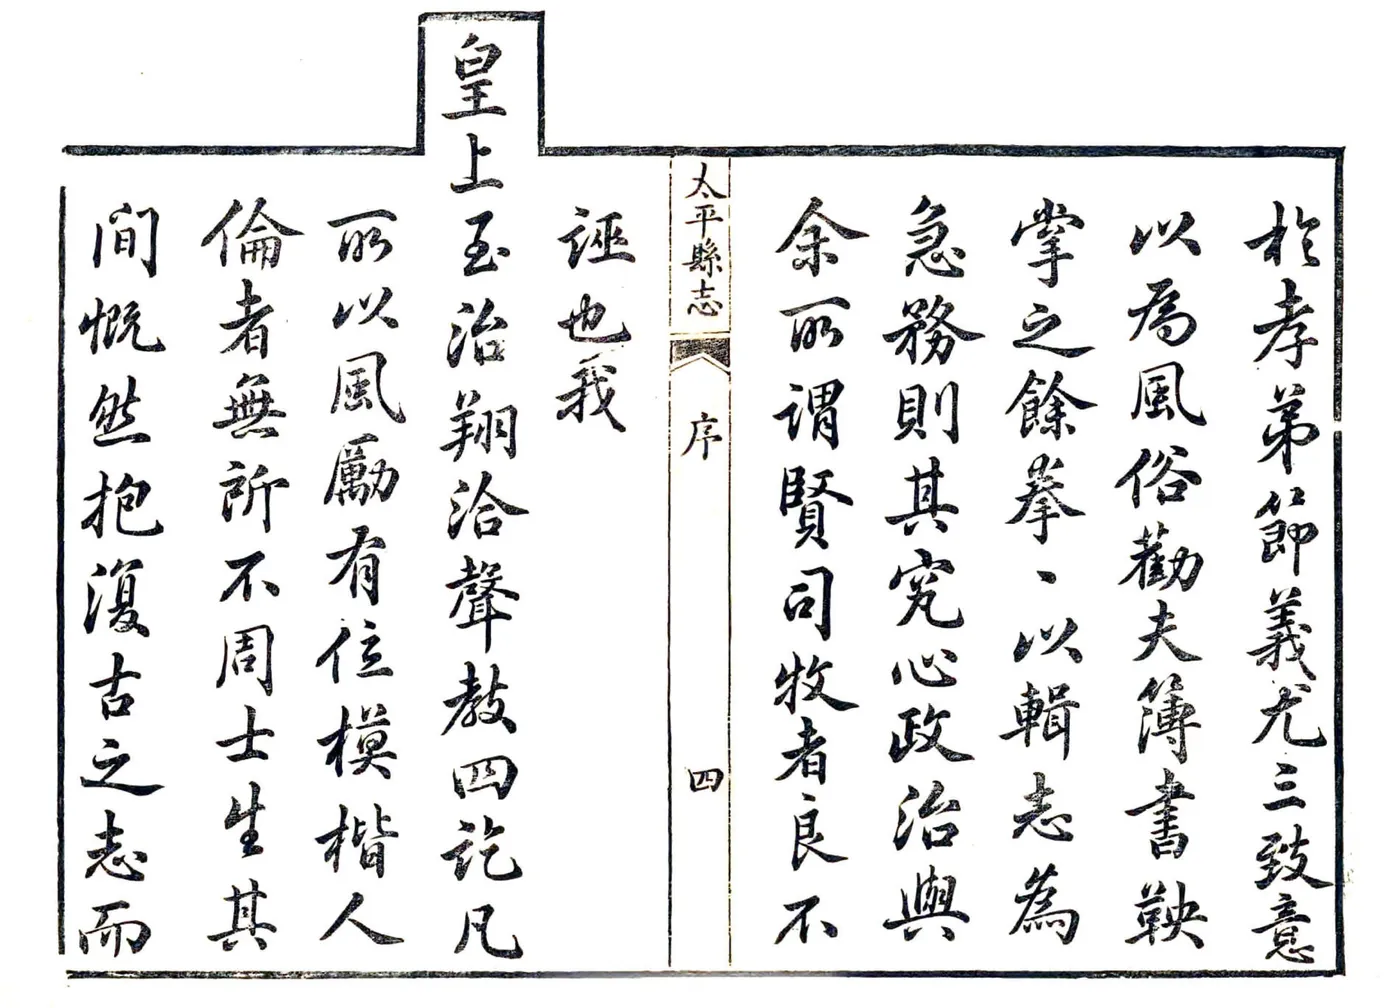 於孝弟節義尤三致意
以為風俗勸夫簿書鞅
掌之餘拳、以輯志為
急務則其究心政治與
余所謂賢司牧者良不
太平縣志
序
四
誣也我
皇上至治翔洽聲教四訖凡
所以風勵有位模楷人
倫者無所不周士生其
間慨然抱復古之志而